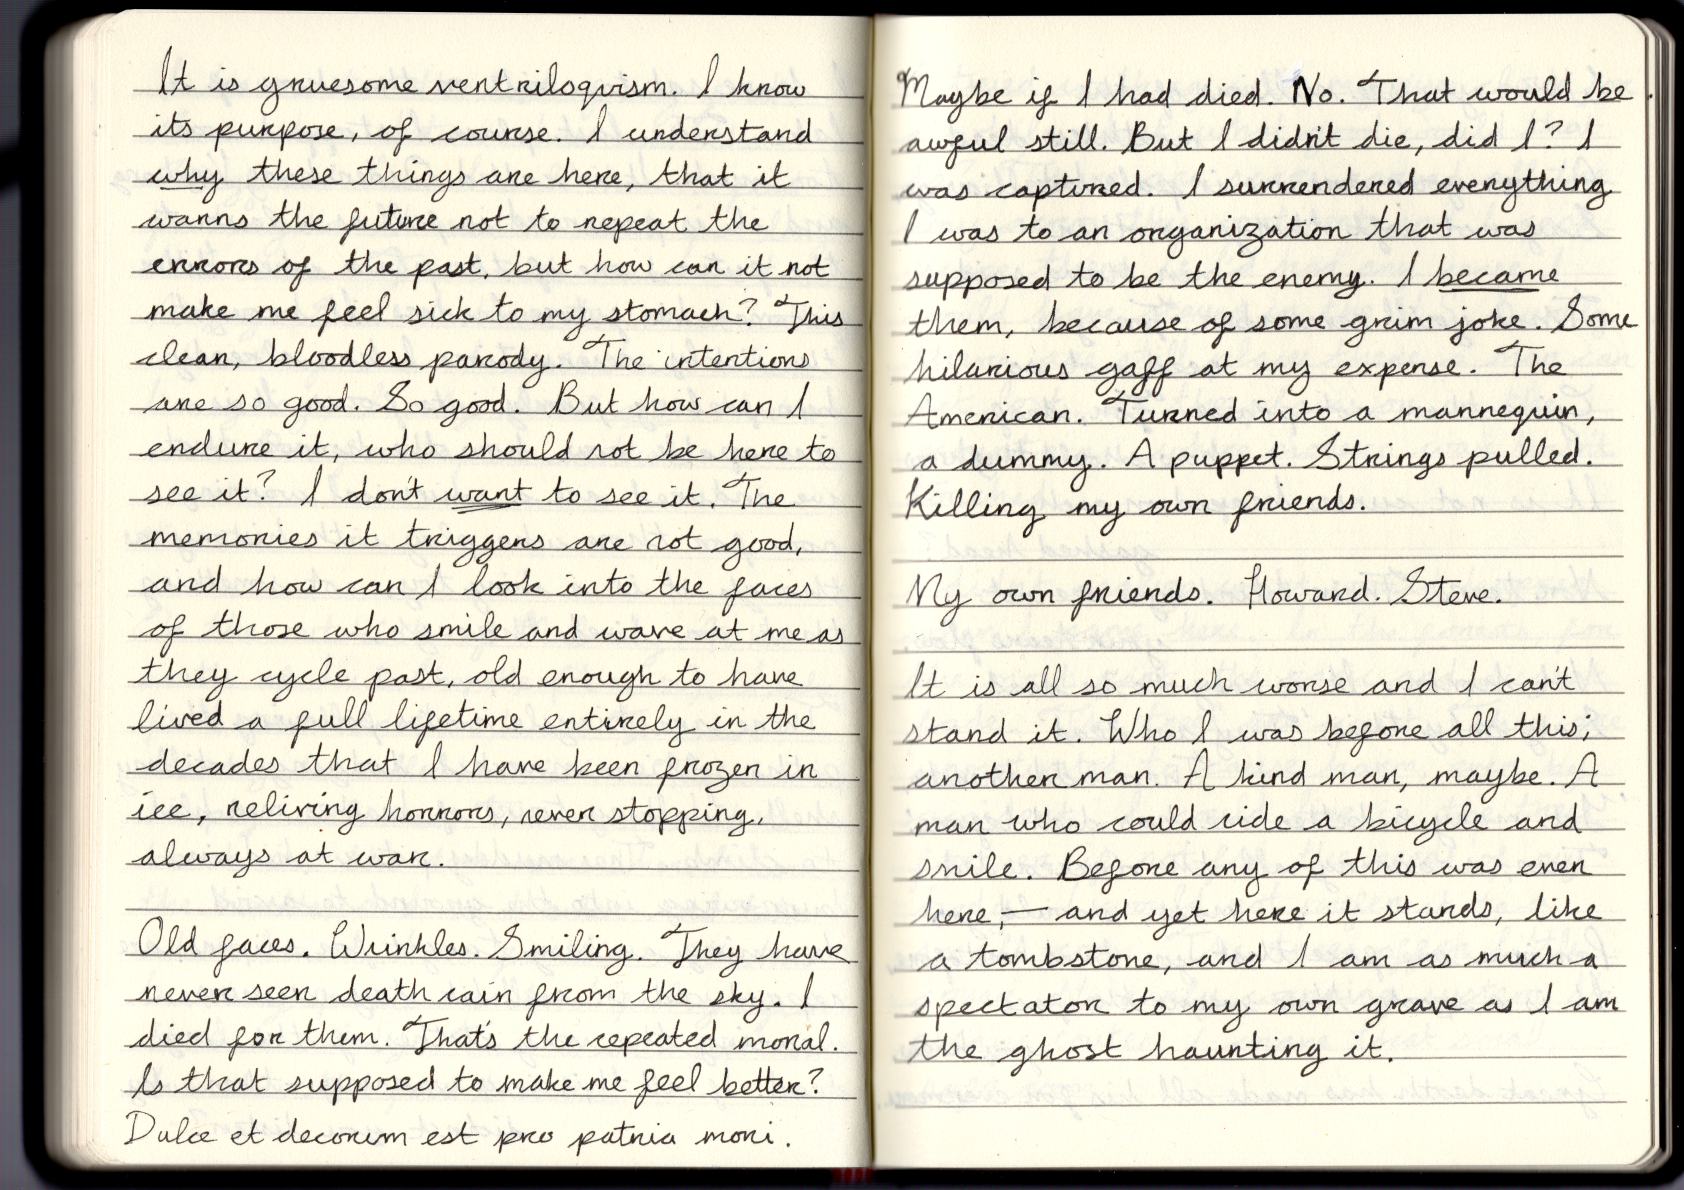 It is gruesome ventriloquism. I know
its purpose, of course. I understand
why these things are here, that it
warns the future not to repeat the
errors of the past, but how can it not
make me feel sick to my stomach? This
clean, bloodless parody. The intentions
are so good. So good. But how can I
endure it, who should not be here to
see it? I don't want to see it. The
memories it triggers are not good,
and how can I look into the faces
of those who smile and wave at me as
they cycle past, old enough to have
lived a full lifetime entirely in the
decades that I have been frozen in
ice, reliving horrors, never stopping,
always at war.
Old faces. Wrinkles. Smiling. They have
never seen death rain from the sky. I
died for them. That's the repeated moral.
Is that supposed to make me feel better?
Dulce et decorum est pro patria mori.
Maybe if I had died. No. That would be
awful still. But I didn't die, did I? I
was captured. I surrendered everything
I was to an organization that was
supposed to be the enemy. I became
them, because of some grim joke. Some
hilarious gaff at my expense. The
American. Turned into a mannequin,
a dummy. A puppet. Strings pulled.
Killing my own friends.
My own friends. Howard. Steve.
It is all so much worse and I can't
stand it. Who I was before all this;
another man. A kind man, maybe. A
man who could ride a bicycle and
smile. Before any of this was even
here; — and yet here it stands, like
a tombstone, and I am as much a
spectator to my own grave as I am
the ghost haunting it.